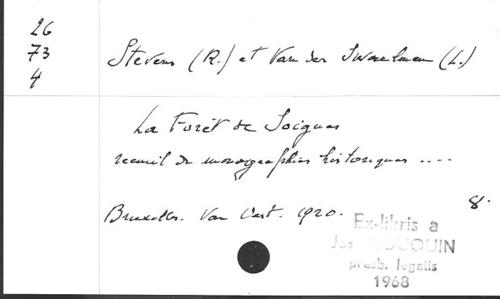 26
73
4
Stevens (R.) et Van der Swaelmen (L.)
La Forêt de Soignes
recueil de monographies historiques ....
Bruxelles. Van Oest. 1920. 8°
Ex-libris a
Jos
presb. legatis
1968